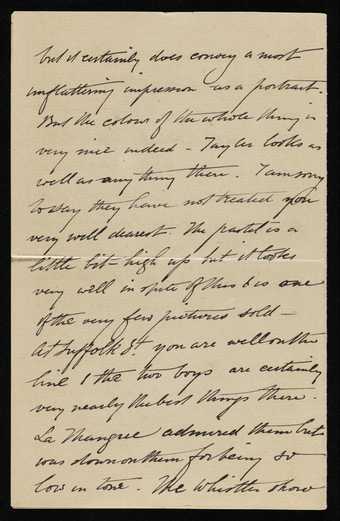 but it certainly does convey a most
unflattering impression as a portrait.
But the colour of the whole thing is
very nice indeed - looks as
well as anything there. I am sorry
to say they have not treated you
very well dearest. The pastel is a
little bit high up but it looks
very well in spite of this & is one
of the very few pictures sold -
At Suffolk St. you are well on the
line & the two boys are certainly
very nearly the best things there.
La Thangue admired them but
was down on them for being so
low in tone. The Whistler show